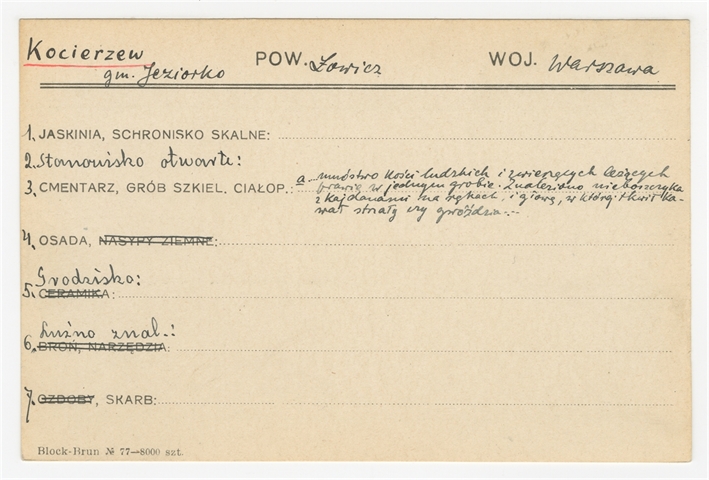 Kocierzew POW. Łowicz WOJ. Warszawa
gm. Jeziorko
1. JASKINIA, SCHRONISKO SKALNE:
2. Stanowisko otwarte:
3. CMENTARZ, GRÓB SZKIEL, CIAŁOP.: a mnóstwo kości ludzkich i zwierzęcych leżących
prawie w jednym grobie. Znaleziono nieboszczyka
z kajdanami na rękach, i głowę, w której tkwił ka-
wał strzały czy gwoździa.-
4. OSADA, NASYPY ZIEMNE:
Grodzisko:
5. CERAMIKA:
Luźno znal.:
6. BROŃ, NARZĘDZIA:
7. OZDOBY, SKARB:
Block-Brun № 77—8000 szt.